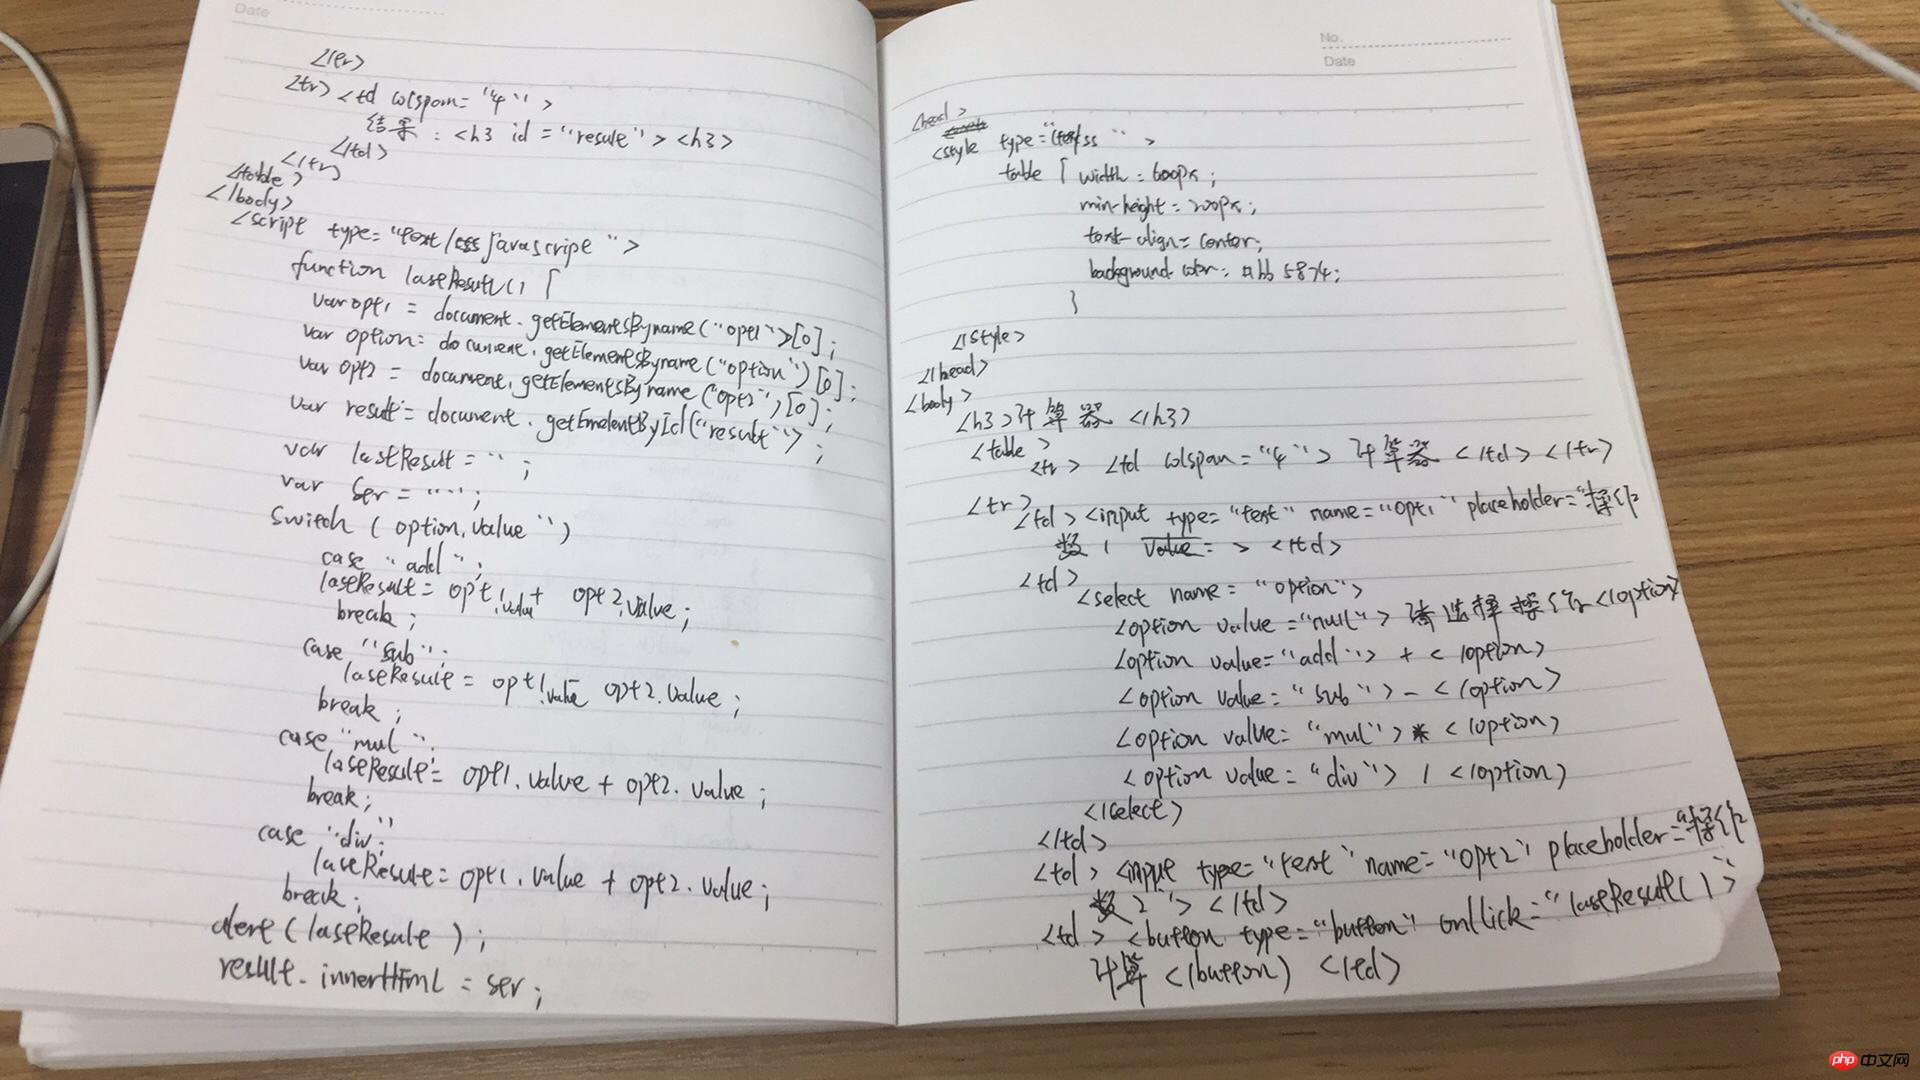 Date
</tr>
<tr> <td colspan="4">
结果:<h3 id="result"><h3>
</td>
</tr>
<table>
</body>
<script type="text/css javascript">
function lastResult() {
var opt1 = document.getElementsByname("opt1")[0];
var option = document.getElementsByname("option")[0];
var opt2 = document.getElementsByname("opt2")[0];
var result = document.getEmelentById("result");
var lastResult = "";
var ser = "";
switch (option.value")
case "add";
lastResult = opt1.value + opt2.value;
break;
case "sub":
lastResult = opt1.value - opt2.value;
break;
case "mul":
lastResult = opt1.value + opt2.value;
break;
case "div":
lastResult = opt1.value + opt2.value;
break;
alert(lastResult);
result.innerHtml = ser;
No.
Date
<head>
<style type="css">
table { width:600px;
min-height:200px;
text-align:center;
background-color:#bb5874;
}
</style>
</head>
<body>
<h3>计算器</h3>
<table>
<tr> <td colspan="4">计算器</td></tr>
<tr>
<td><input type="text" name="opt1" placeholder="操作
数1 value=> </td>
<td>
<select name="option">
<option value="null">请选择操作</option>
<option value="add">+</option>
<option value="sub">-</option>
<option value="mul">*</option>
<option value="div">/</option>
</select>
</td>
<td><input type="text" name="opt2" placeholder="操作
数2"></td>
<td><button type="button" onclick="lastResult()">
计算</button></td>
php中文网